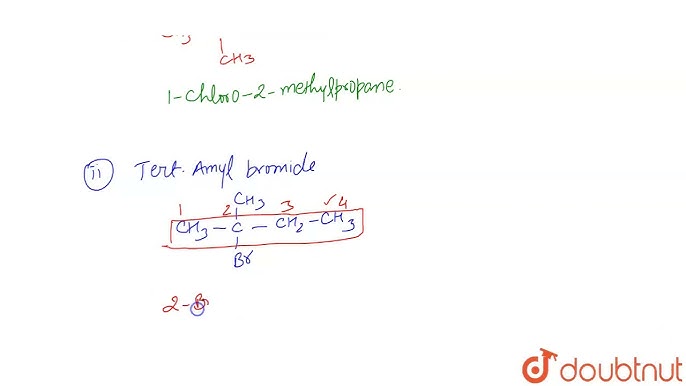 CH3
1-Chloro-2-methylpropane.
ii Tert. Amyl bromide
CH3
1 2 3 ✓4
CH3-C-CH2-CH3
Br
2-B
doubtnut